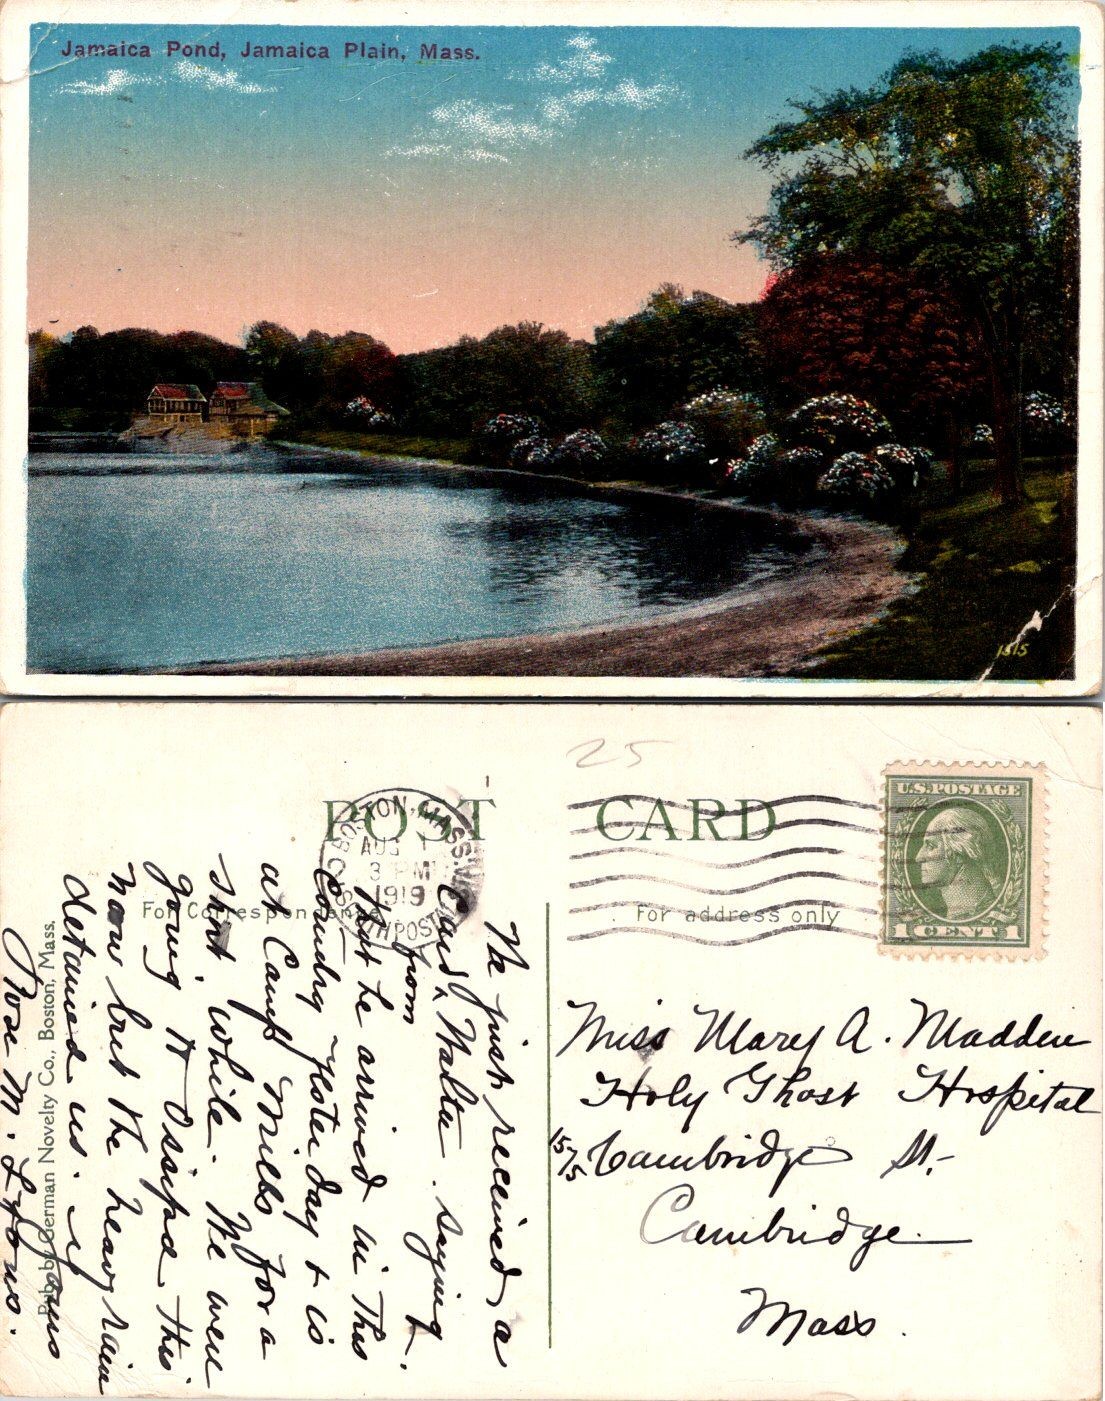 Jamaica Pond, Jamaica Plain, Mass.
1515
POST CARD
25
BOSTON, MASS.
AUG 1
3 PM
1919
U.S. POSTAGE
1 CENT 1
For Correspondence
For address only
Pub. by German Novelty Co., Boston, Mass.
We just received a
Card from Walter. saying
that he arrived in this
Country yesterday & is
at Camp Mills for a
short while. We were
going to Ossipee this
now but the heavy rain
detained us. Yours
Rose M. Lyons.
Miss Mary A. Madden
Holy Ghost Hospital
1575 Cambridge St.
Cambridge
Mass.